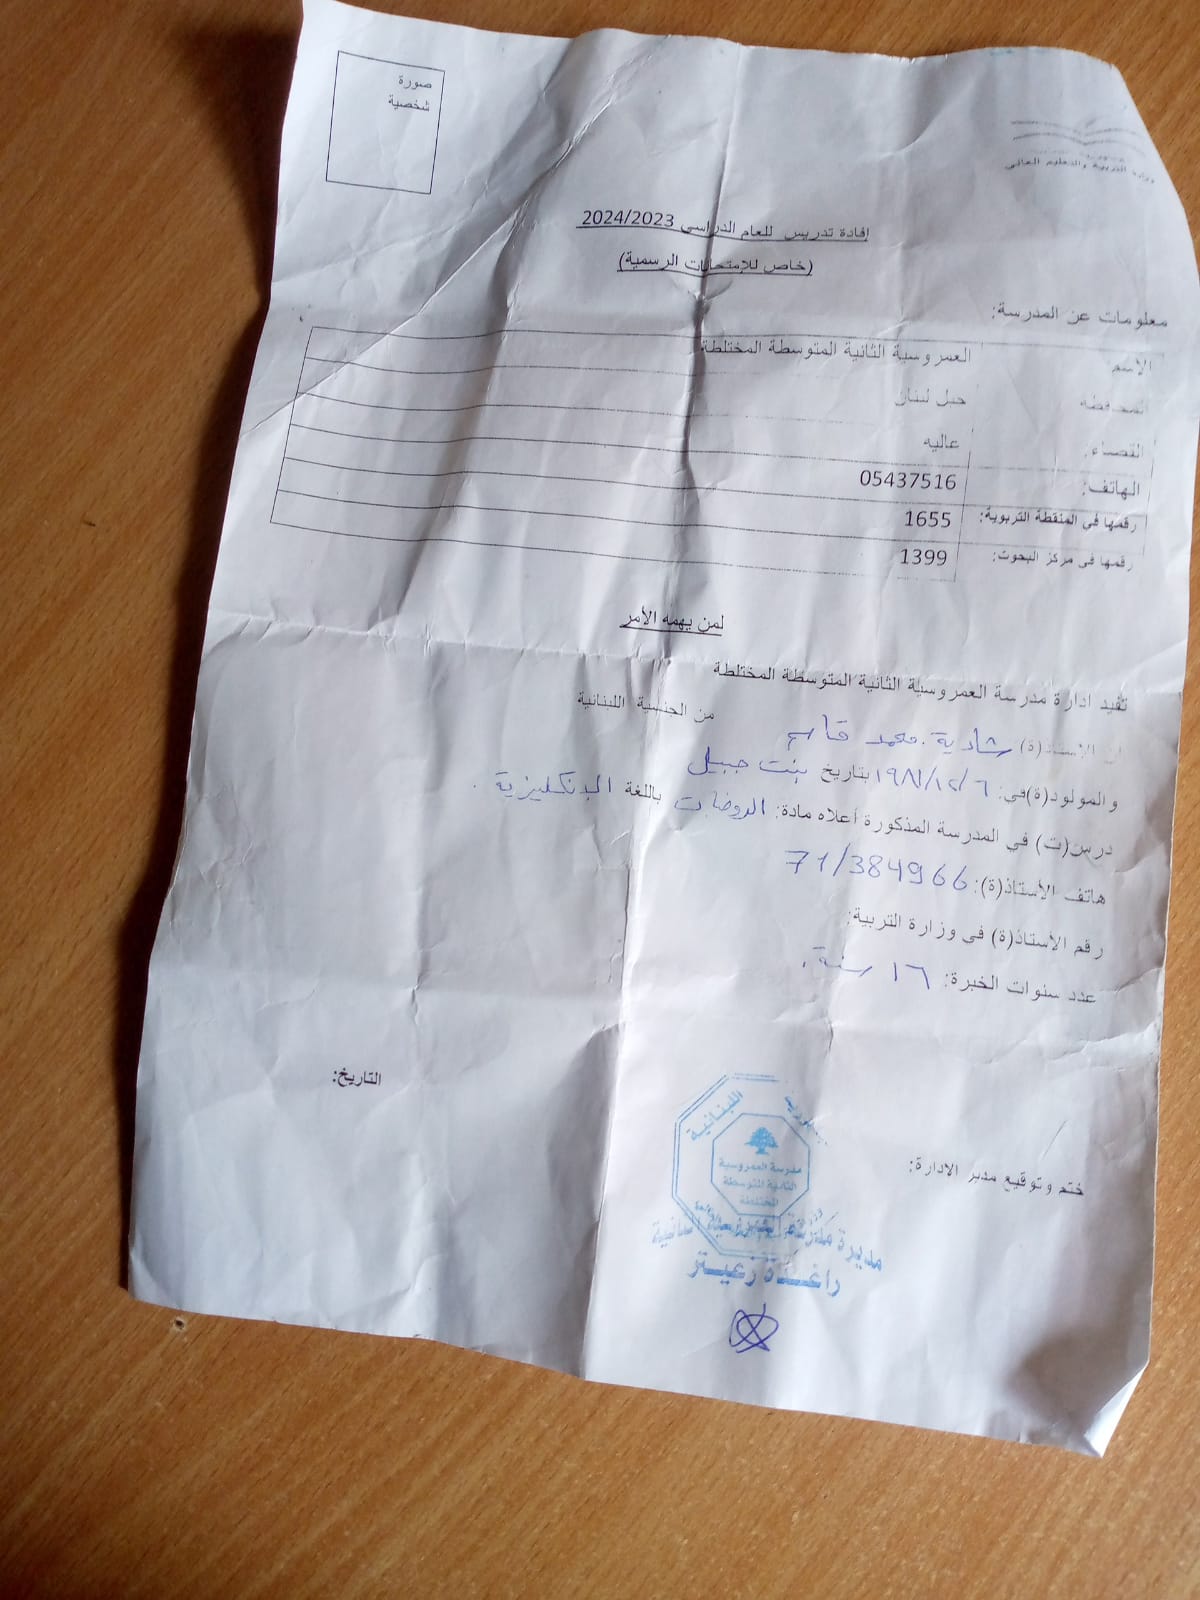 صورة
شخصية
وزارة التربية والتعليم العالي
إفادة تدريس للعام الدراسي 2024/2023
(خاص للإمتحانات الرسمية)
معلومات عن المدرسة:
الاسم العمروسية الثانية المتوسطة المختلطة
المحافظة جبل لبنان
القضاء: عاليه
الهاتف: 05437516
رقمها في المنقطة التربوية: 1655
رقمها في مركز البحوث: 1399
لمن يهمه الأمر
تفيد ادارة مدرسة العمروسية الثانية المتوسطة المختلطة
ان الاستاذ(ة) شادية محمد قاسم من الجنسية اللبنانية
والمولود(ة)في: ٦/١٢/١٩٨١ بتاريخ بنت جبيل
درس(ت) في المدرسة المذكورة أعلاه مادة: الروضات باللغة الإنكليزية.
هاتف الأستاذ(ة): 71/384966
رقم الأستاذ(ة) في وزارة التربية:
عدد سنوات الخبرة: ١٦ سنة.
التاريخ:
ختم وتوقيع مدير الادارة:
الجمهورية اللبنانية
مدرسة العمروسية
الثانية المتوسطة
المختلطة
مديرة مدرسة العمروسية الثانية
راغدة زعيتر